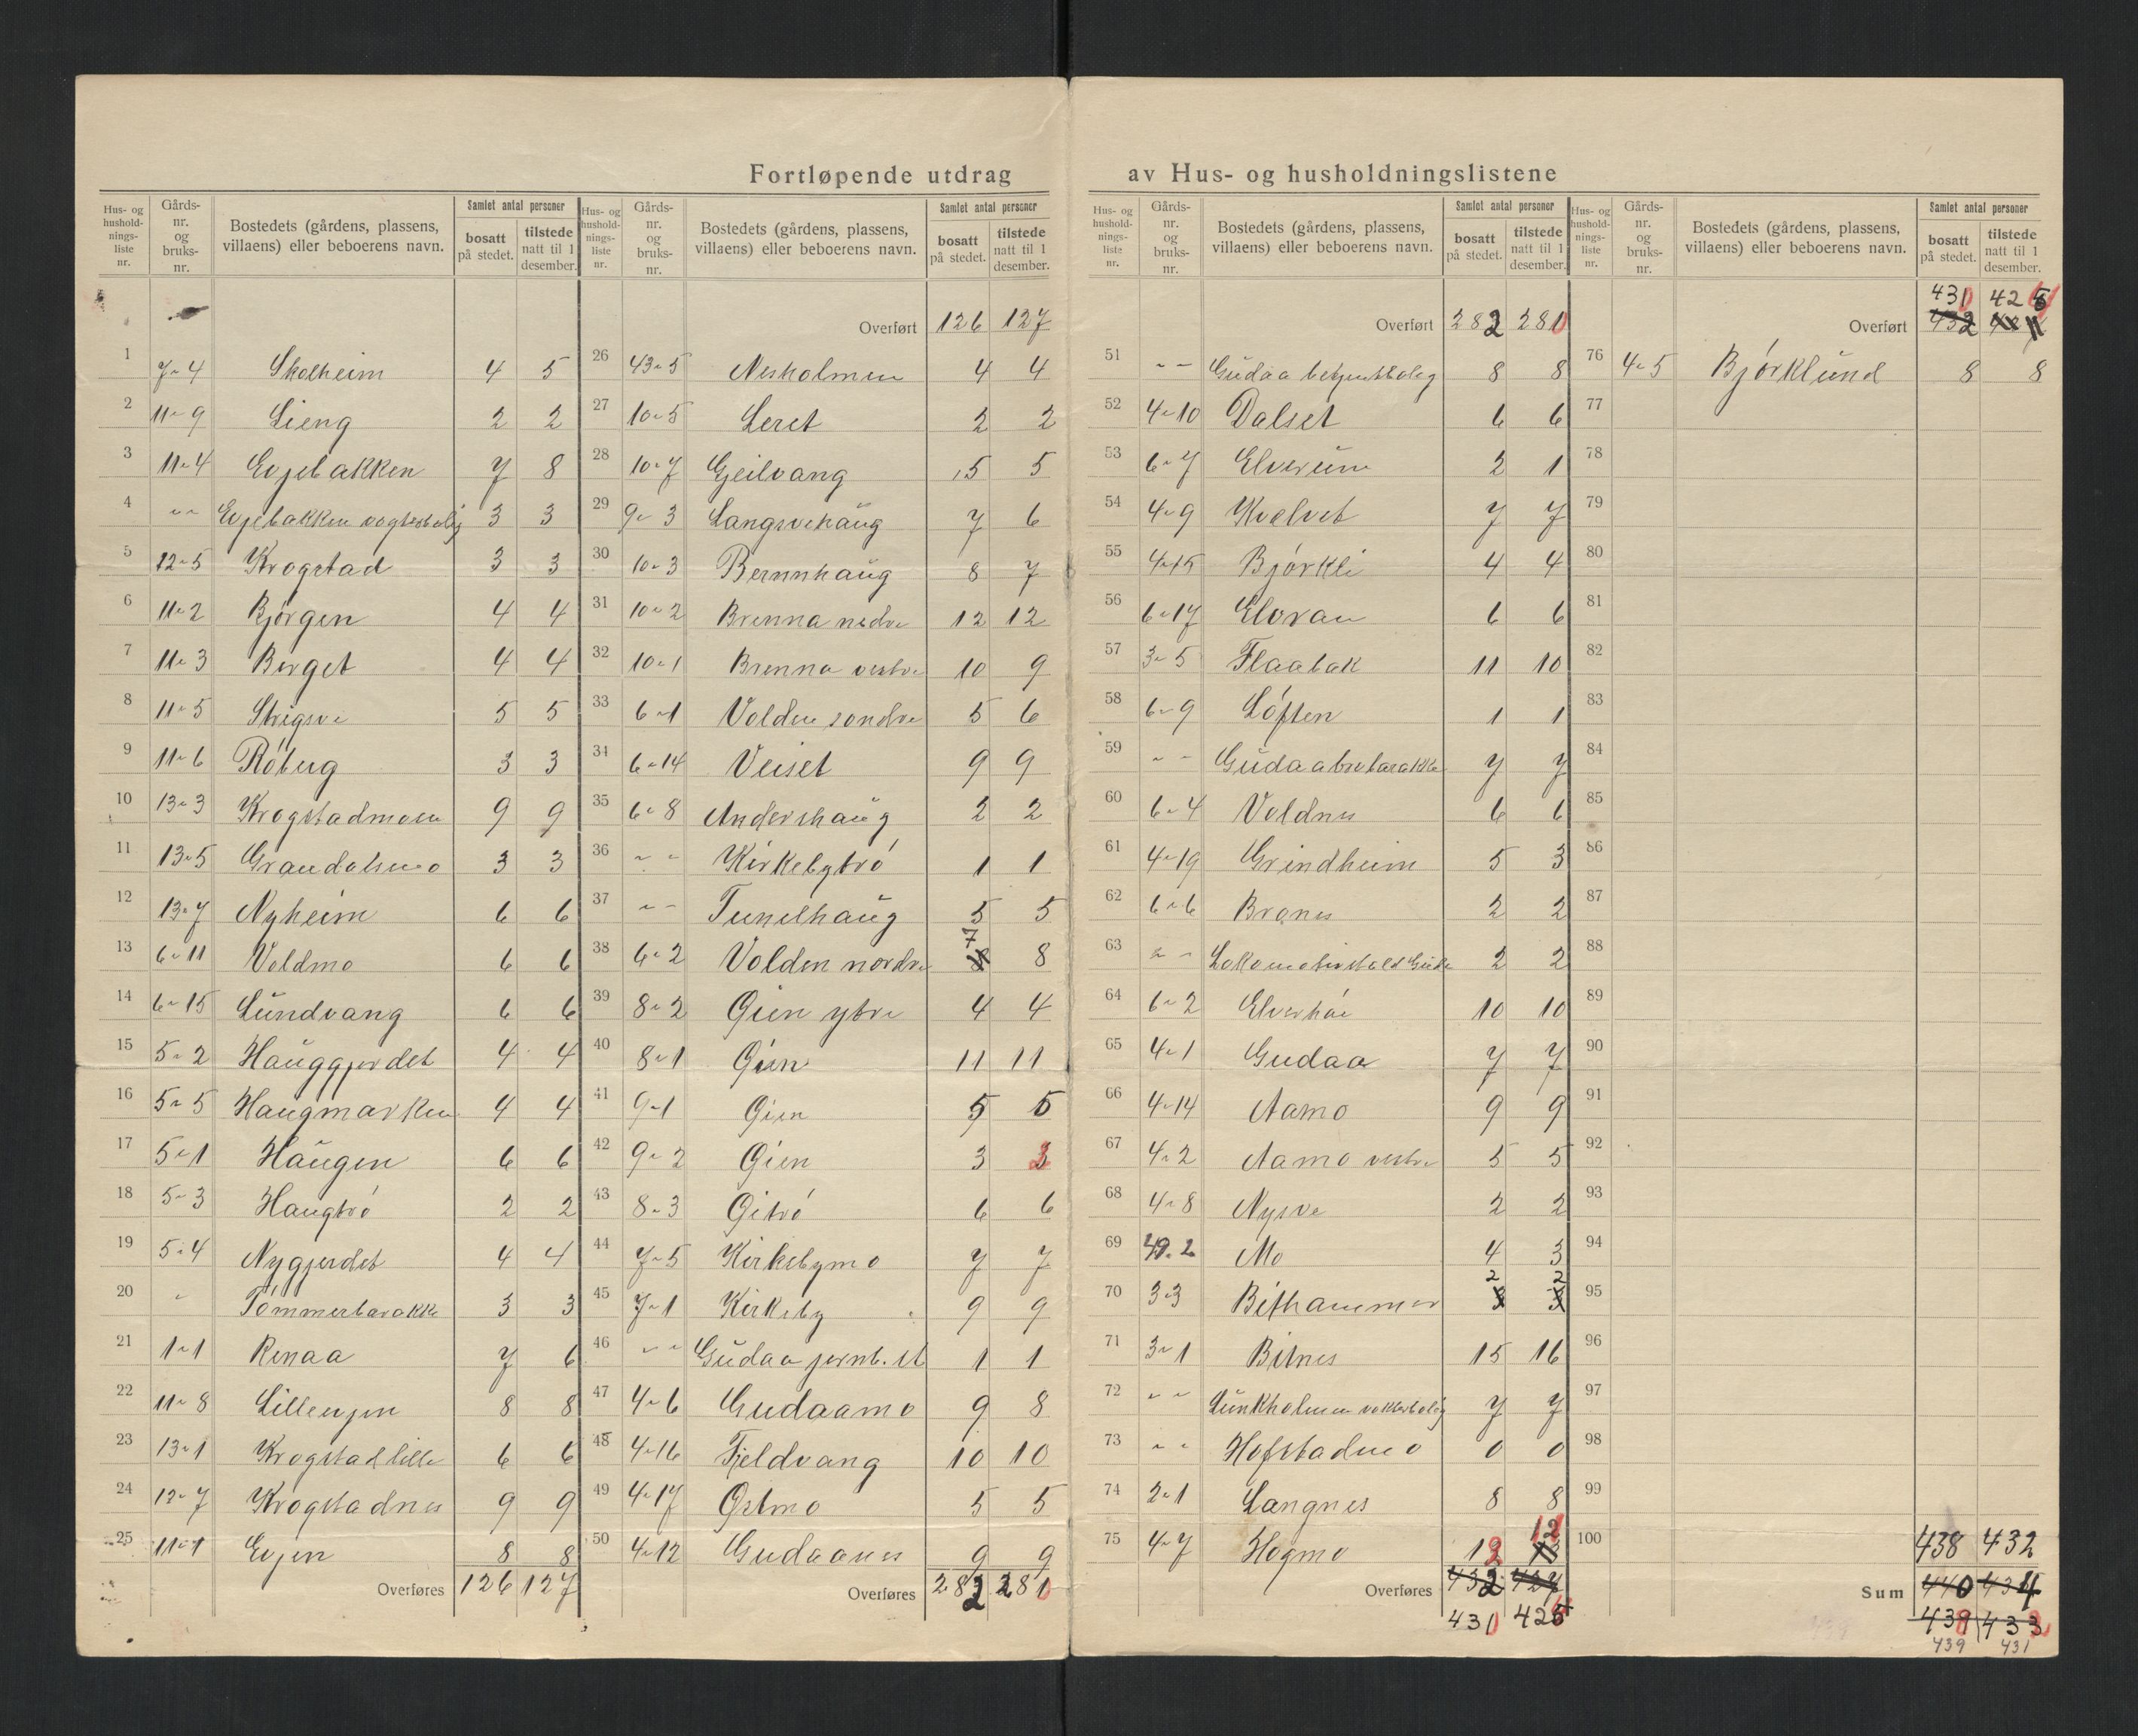 Fortløpende utdrag av Hus- og husholdningslistene
Hus- og hushold-nings-liste nr. Gårds-nr. og bruks-nr. Bostedets (gårdens, plassens, villaens) eller beboerens navn. Samlet antal personer bosatt på stedet. tilstede natt til 1 desember.
1 7-4 Skolheim 4 5
2 11-9 Lieng 2 2
3 11-4 Evjebakken 7 8
4 -"- Evjebakken vogterbolig 3 3
5 12-5 Krogstad 3 3
6 11-2 Bjørgen 4 4
7 11-3 Berget 4 4
8 11-5 Stigsve 5 5
9 11-6 Röberg 3 3
10 13-3 Krogstadmoen 9 9
11 13-5 Grandalsmo 3 3
12 13-7 Nyheim 6 6
13 6-11 Voldmo 6 6
14 6-15 Lundvang 6 6
15 5-2 Hauggjerdet 4 4
16 5-5 Haugmarken 4 4
17 5-1 Haugen 6 6
18 5-3 Haugtrö 2 2
19 5-4 Nygjerdet 4 4
20 " Tömmerbarakke 3 3
21 1-1 Renaa 7 6
22 11-8 Lilleevjen 8 8
23 13-1 Krogstad lille 6 6
24 12-7 Krogstadnes 9 9
25 11-1 Evjen 8 8
Overføres 126 127
Hus- og hushold-nings-liste nr. Gårds-nr. og bruks-nr. Bostedets (gårdens, plassens, villaens) eller beboerens navn. Samlet antal personer bosatt på stedet. tilstede natt til 1 desember.
Overført 126 127
26 43-5 Nesholmen 4 4
27 10-5 Leret 2 2
28 10-7 Gjeilvang 5 5
29 9-3 Langsvehaug 7 6
30 10-3 Bernnhaug 8 7
31 10-2 Brenna nedre 12 12
32 10-1 Brenna vestre 10 9
33 6-1 Volden søndre 5 6
34 6-14 Veiset 9 9
35 6-8 Andershaug 2 2
36 - - Kirkebytrö 1 1
37 - - Tunelhaug 5 5
38 6-2 Volden nordre 7 8 8
39 8-2 Gien ytre 4 4
40 8-1 Gien 11 11
41 9-1 Gien 5 5
42 9-2 Gien 3 3
43 8-3 Gitrö 6 6
44 7-5 Kirkebymo 7 7
45 7-1 Kirkeby 9 9
46 - - Gudaa jernb. st 1 1
47 4-6 Gudaamo 9 8
48 4-16 Fjeldvang 10 10
49 4-17 Østmo 5 5
50 4-12 Gudaanes 9 9
Overføres 282 281
Hus- og hushold-nings-liste nr. Gårds-nr. og bruks-nr. Bostedets (gårdens, plassens, villaens) eller beboerens navn. Samlet antal personer bosatt på stedet. tilstede natt til 1 desember.
Overført 282 280
51 - - Gudaa betjentbolig 8 8
52 4-10 Dalset 6 6
53 6-7 Elverum 2 1
54 4-9 Kvelvet 7 7
55 4-15 Björkli 4 4
56 6-17 Elvran 6 6
57 3-5 Flaabak 11 10
58 6-9 Löften 1 1
59 - - Gudaabrubarakke 7 7
60 6-4 Voldnes 6 6
61 4-19 Grindheim 5 3
62 6-6 Brones 2 2
63 - - Lokomotivstald Guda 2 2
64 6-2 Elverhöi 10 10
65 4-1 Gudaa 7 7
66 4-14 Aamo 9 9
67 4-2 Aamo vestre 5 5
68 4-8 Nysve 2 2
69 49.2 Mo 4 3
70 3-3 Bithammer 2 3 2 3
71 3-1 Bitnes 15 16
72 - - Lunkholmen vokterbolig 7 7
73 - - Hofstadmo 0 0
74 2-1 Langnes 8 8
75 4-7 Hogmo 12 12 13
Overføres 432 427
431 425
Hus- og hushold-nings-liste nr. Gårds-nr. og bruks-nr. Bostedets (gårdens, plassens, villaens) eller beboerens navn. Samlet antal personer bosatt på stedet. tilstede natt til 1 desember.
430 425
Overført 432
76 4-5 Björklund 8 8
77
78
79
80
81
82
83
84
85
86
87
88
89
90
91
92
93
94
95
96
97
98
99
100
438 432
Sum 440 434
439 433
439 431